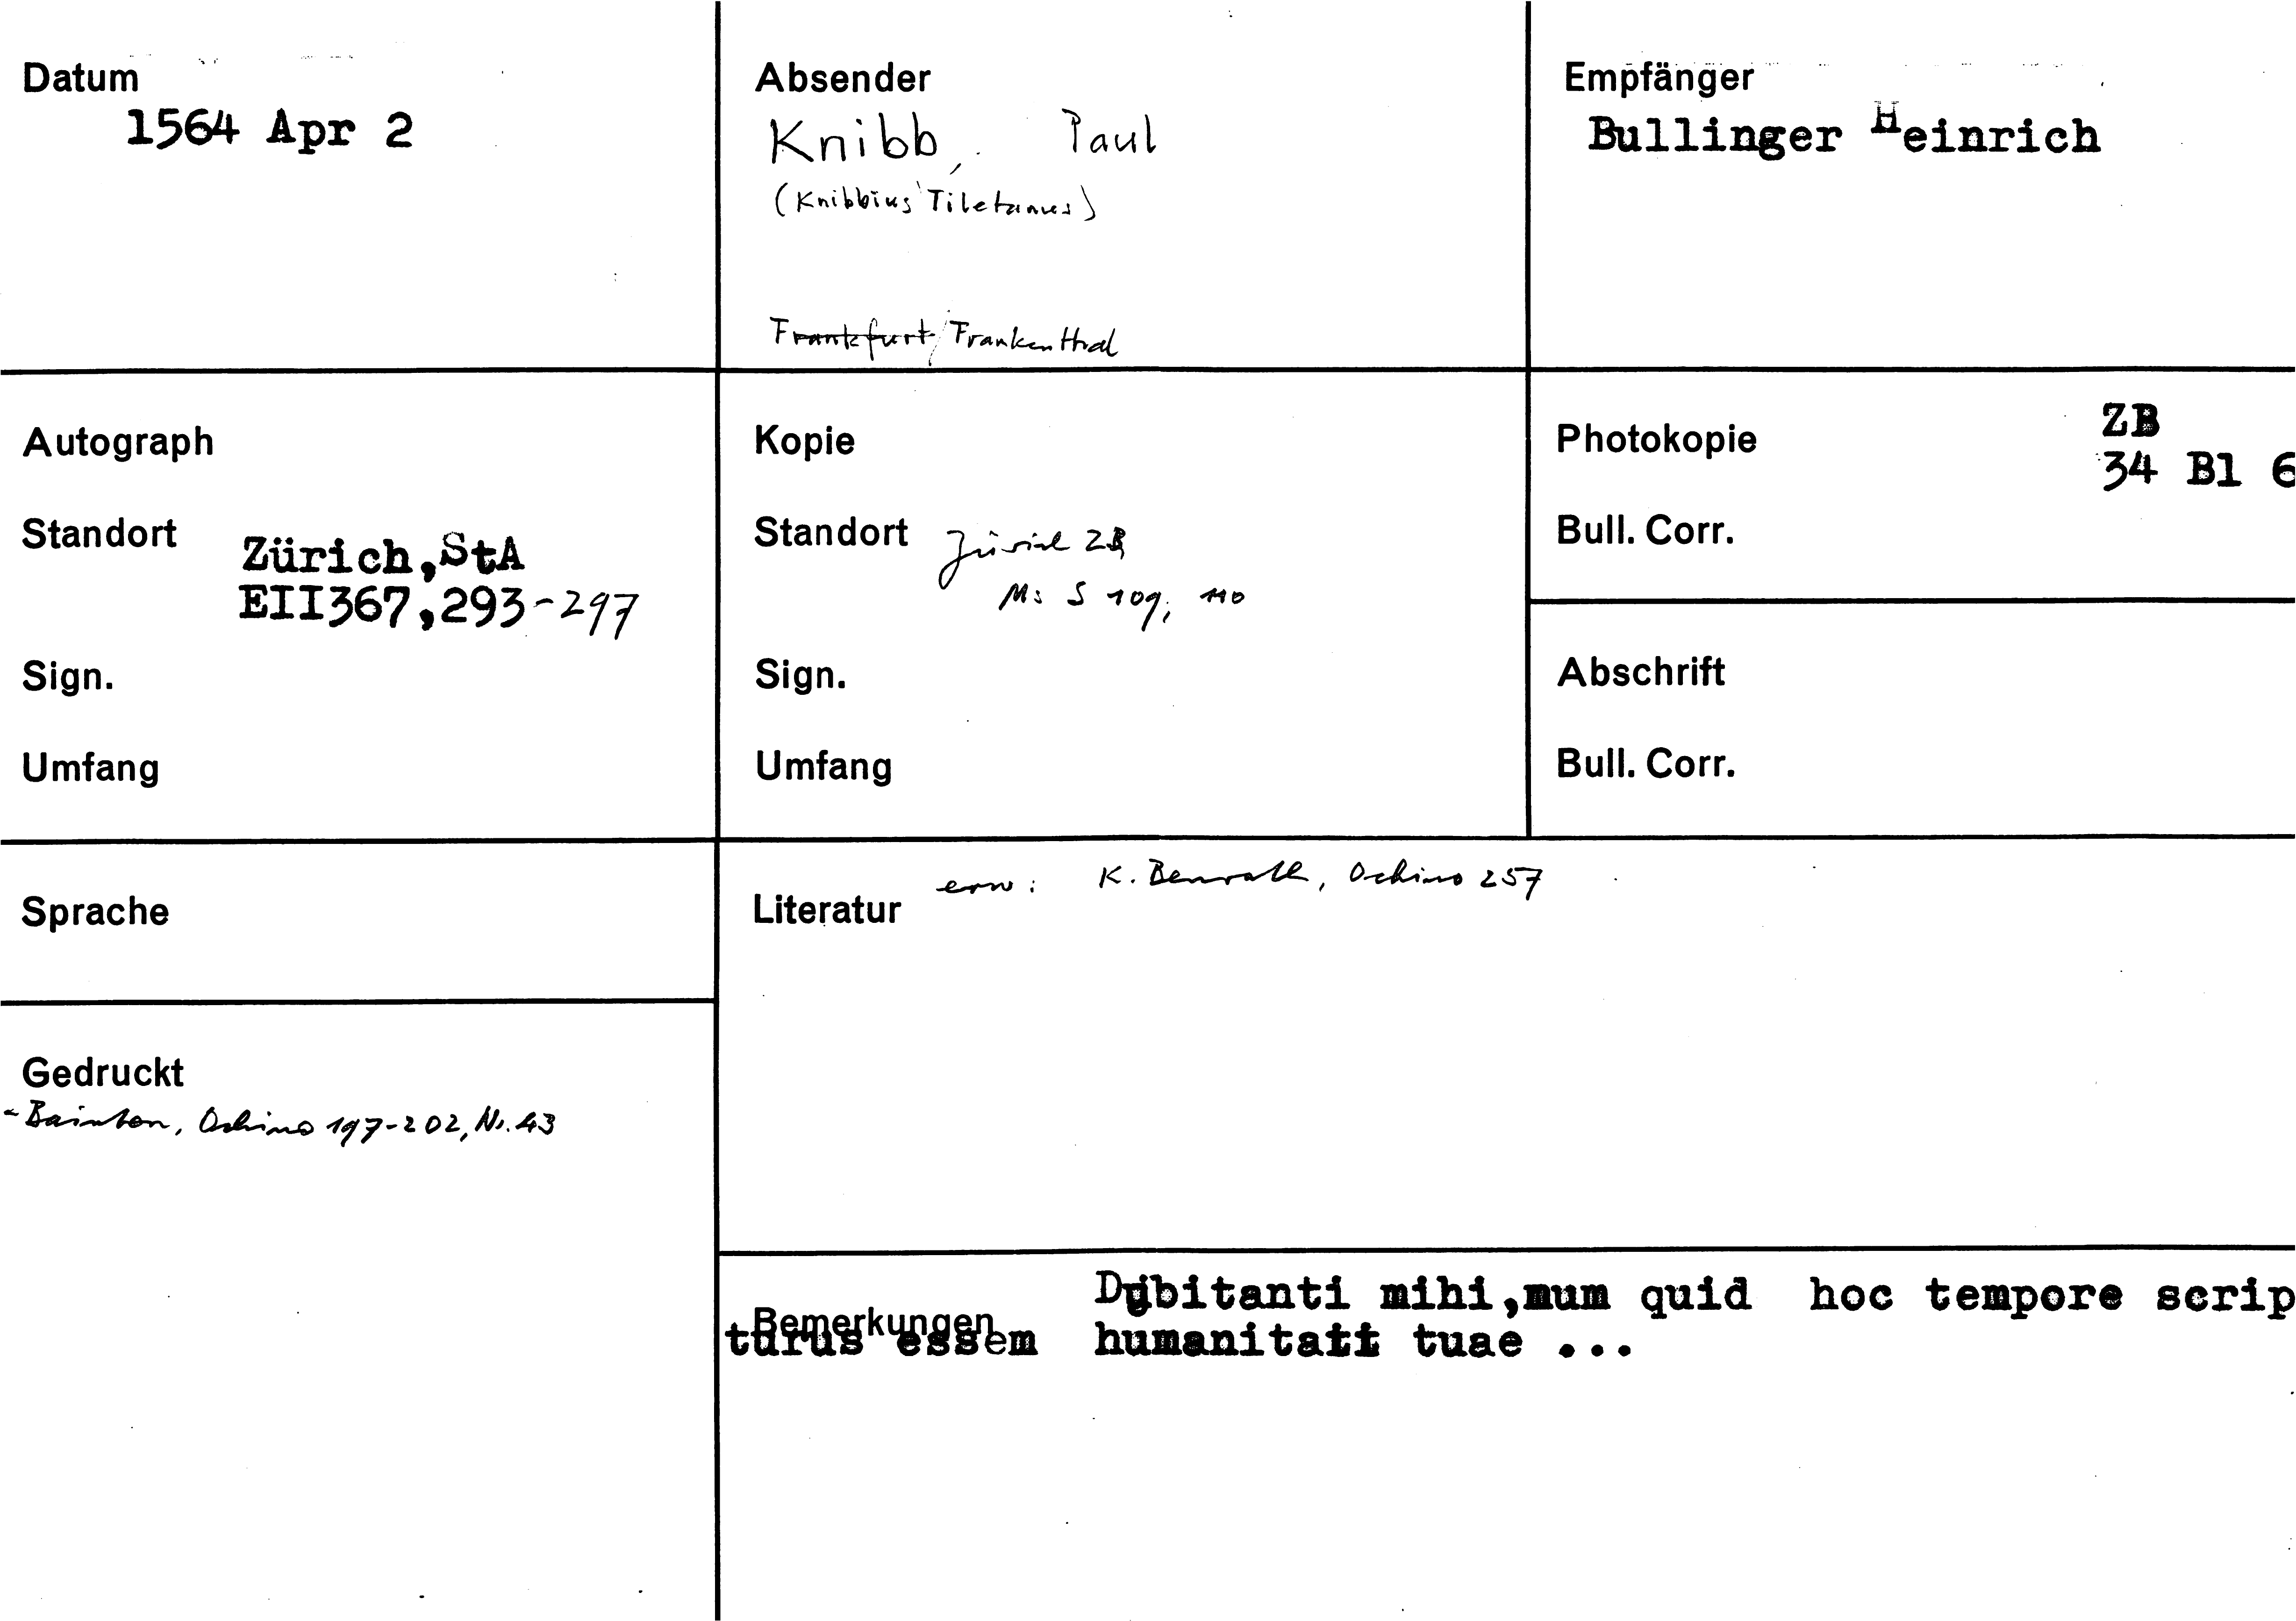 Datum
1564 Apr 2
Absender
Knibb, Paul
(Knibbius Tiletanus)
Frankfurt/Frankenthal
Empfänger
Bullinger Heinrich
Autograph
Standort
Zürich,StA
EII367,293-297
Sign.
Umfang
Kopie
Standort Zürich ZB
Ms S 109, 110
Sign.
Umfang
Photokopie
ZB
34 Bl 6
Bull. Corr.
Abschrift
Bull. Corr.
Sprache
Literatur
erw: K. Benrath, Ochino 257
Gedruckt
- Bainton, Ochino 197-202, Nr. 43
Bemerkungen
Dubitanti mihi,num quid hoc tempore scrip
turus essem humanitati tuae ...